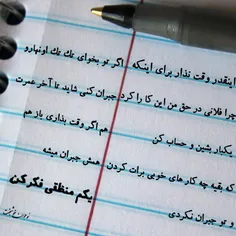 اینقدر وقت نذار برای اینکه اگر تو بخوای تک تک اونهارو
چرا فلانی در حق من این کا را کرد جبران کنی شاید تا آخر عمرت
هم اگر وقت بذاری باز هم
یکبار بشین و حساب کن
که بقیه چه کار های خوبی برات کردن همش جبران میشه
و تو جبران نکردی
یکم منطقی فکر کن